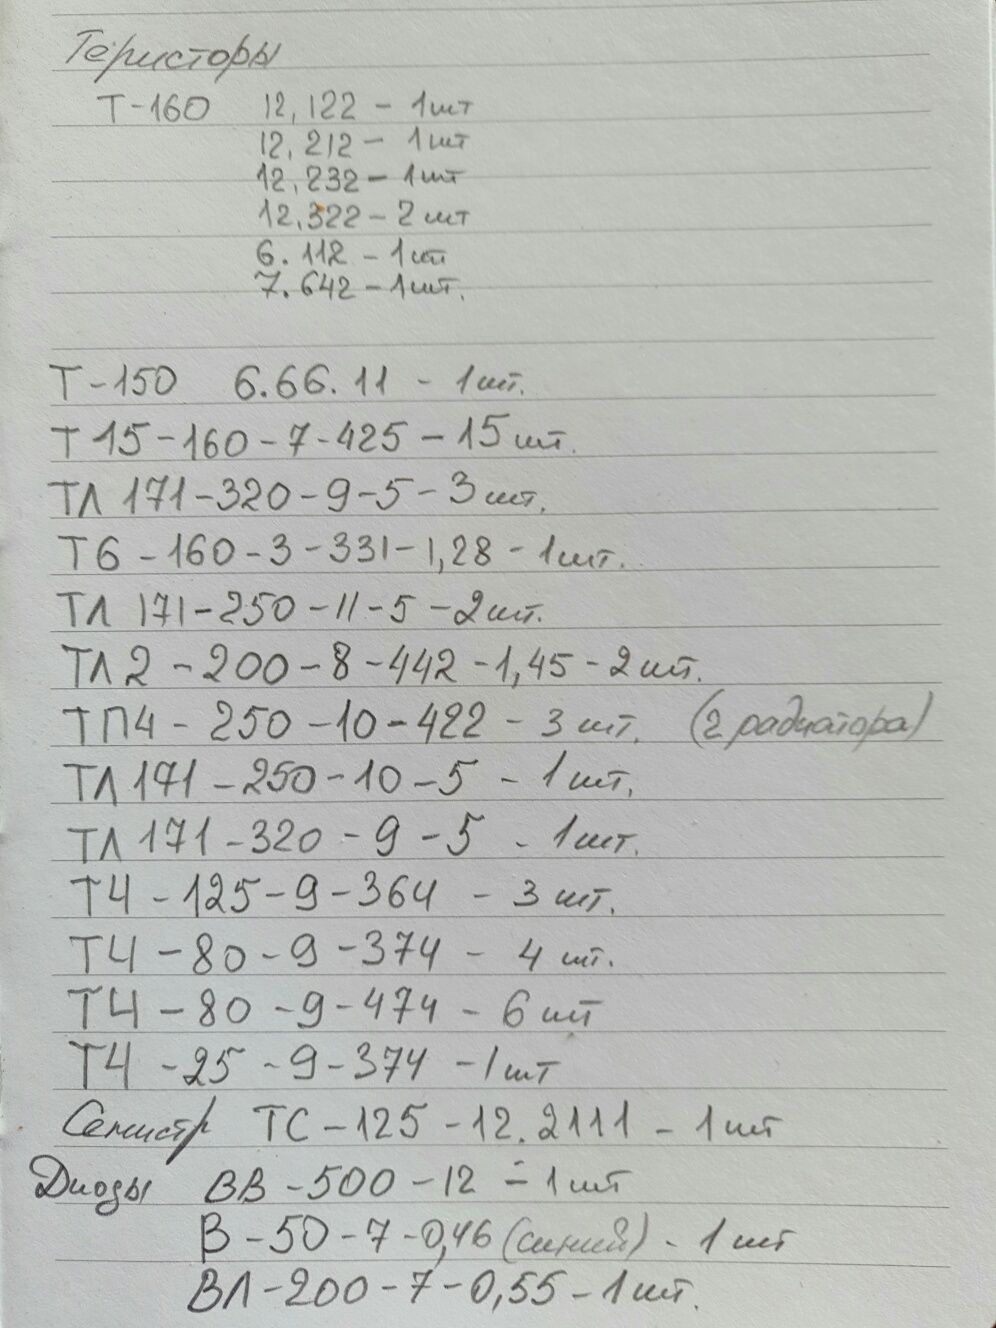 Теристоры
Т-160 12,122 - 1шт
12,212 - 1шт
12,232 - 1шт
12.322 - 2шт
6.112 - 1шт
7.642 - 1шт.
Т-150 6.66.11 - 1шт.
Т15-160-7-425 - 15шт.
ТЛ 171-320-9-5 - 3шт.
Т6-160-3-331-1,28 - 1шт.
ТЛ 171-250-11-5 - 2шт.
ТЛ2-200-8-442-1,45 - 2шт.
ТП4-250-10-422 - 3шт. (2 радиатора)
ТЛ171-250-10-5 - 1шт.
ТЛ171-320-9-5 - 1шт.
Т4-125-9-364 - 3шт.
Т4-80-9-374 - 4шт.
Т4-80-9-474 - 6шт
Т4-25-9-374 - 1шт
Семистр ТС-125-12.2111 - 1шт
Диоды ВВ-500-12 - 1шт
В-50-7-0,46 (синий) - 1шт
ВЛ-200-7-0,55 - 1шт.